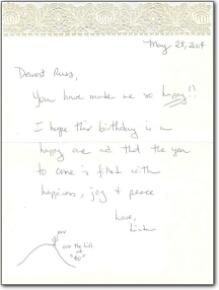 May 28, 2014
Dearest Russ,
You have made me so happy!!
I hope this birthday is a
happy one and that the year
to come is filled with
happiness, joy & peace
Love,
you
over the hill
at
"40"